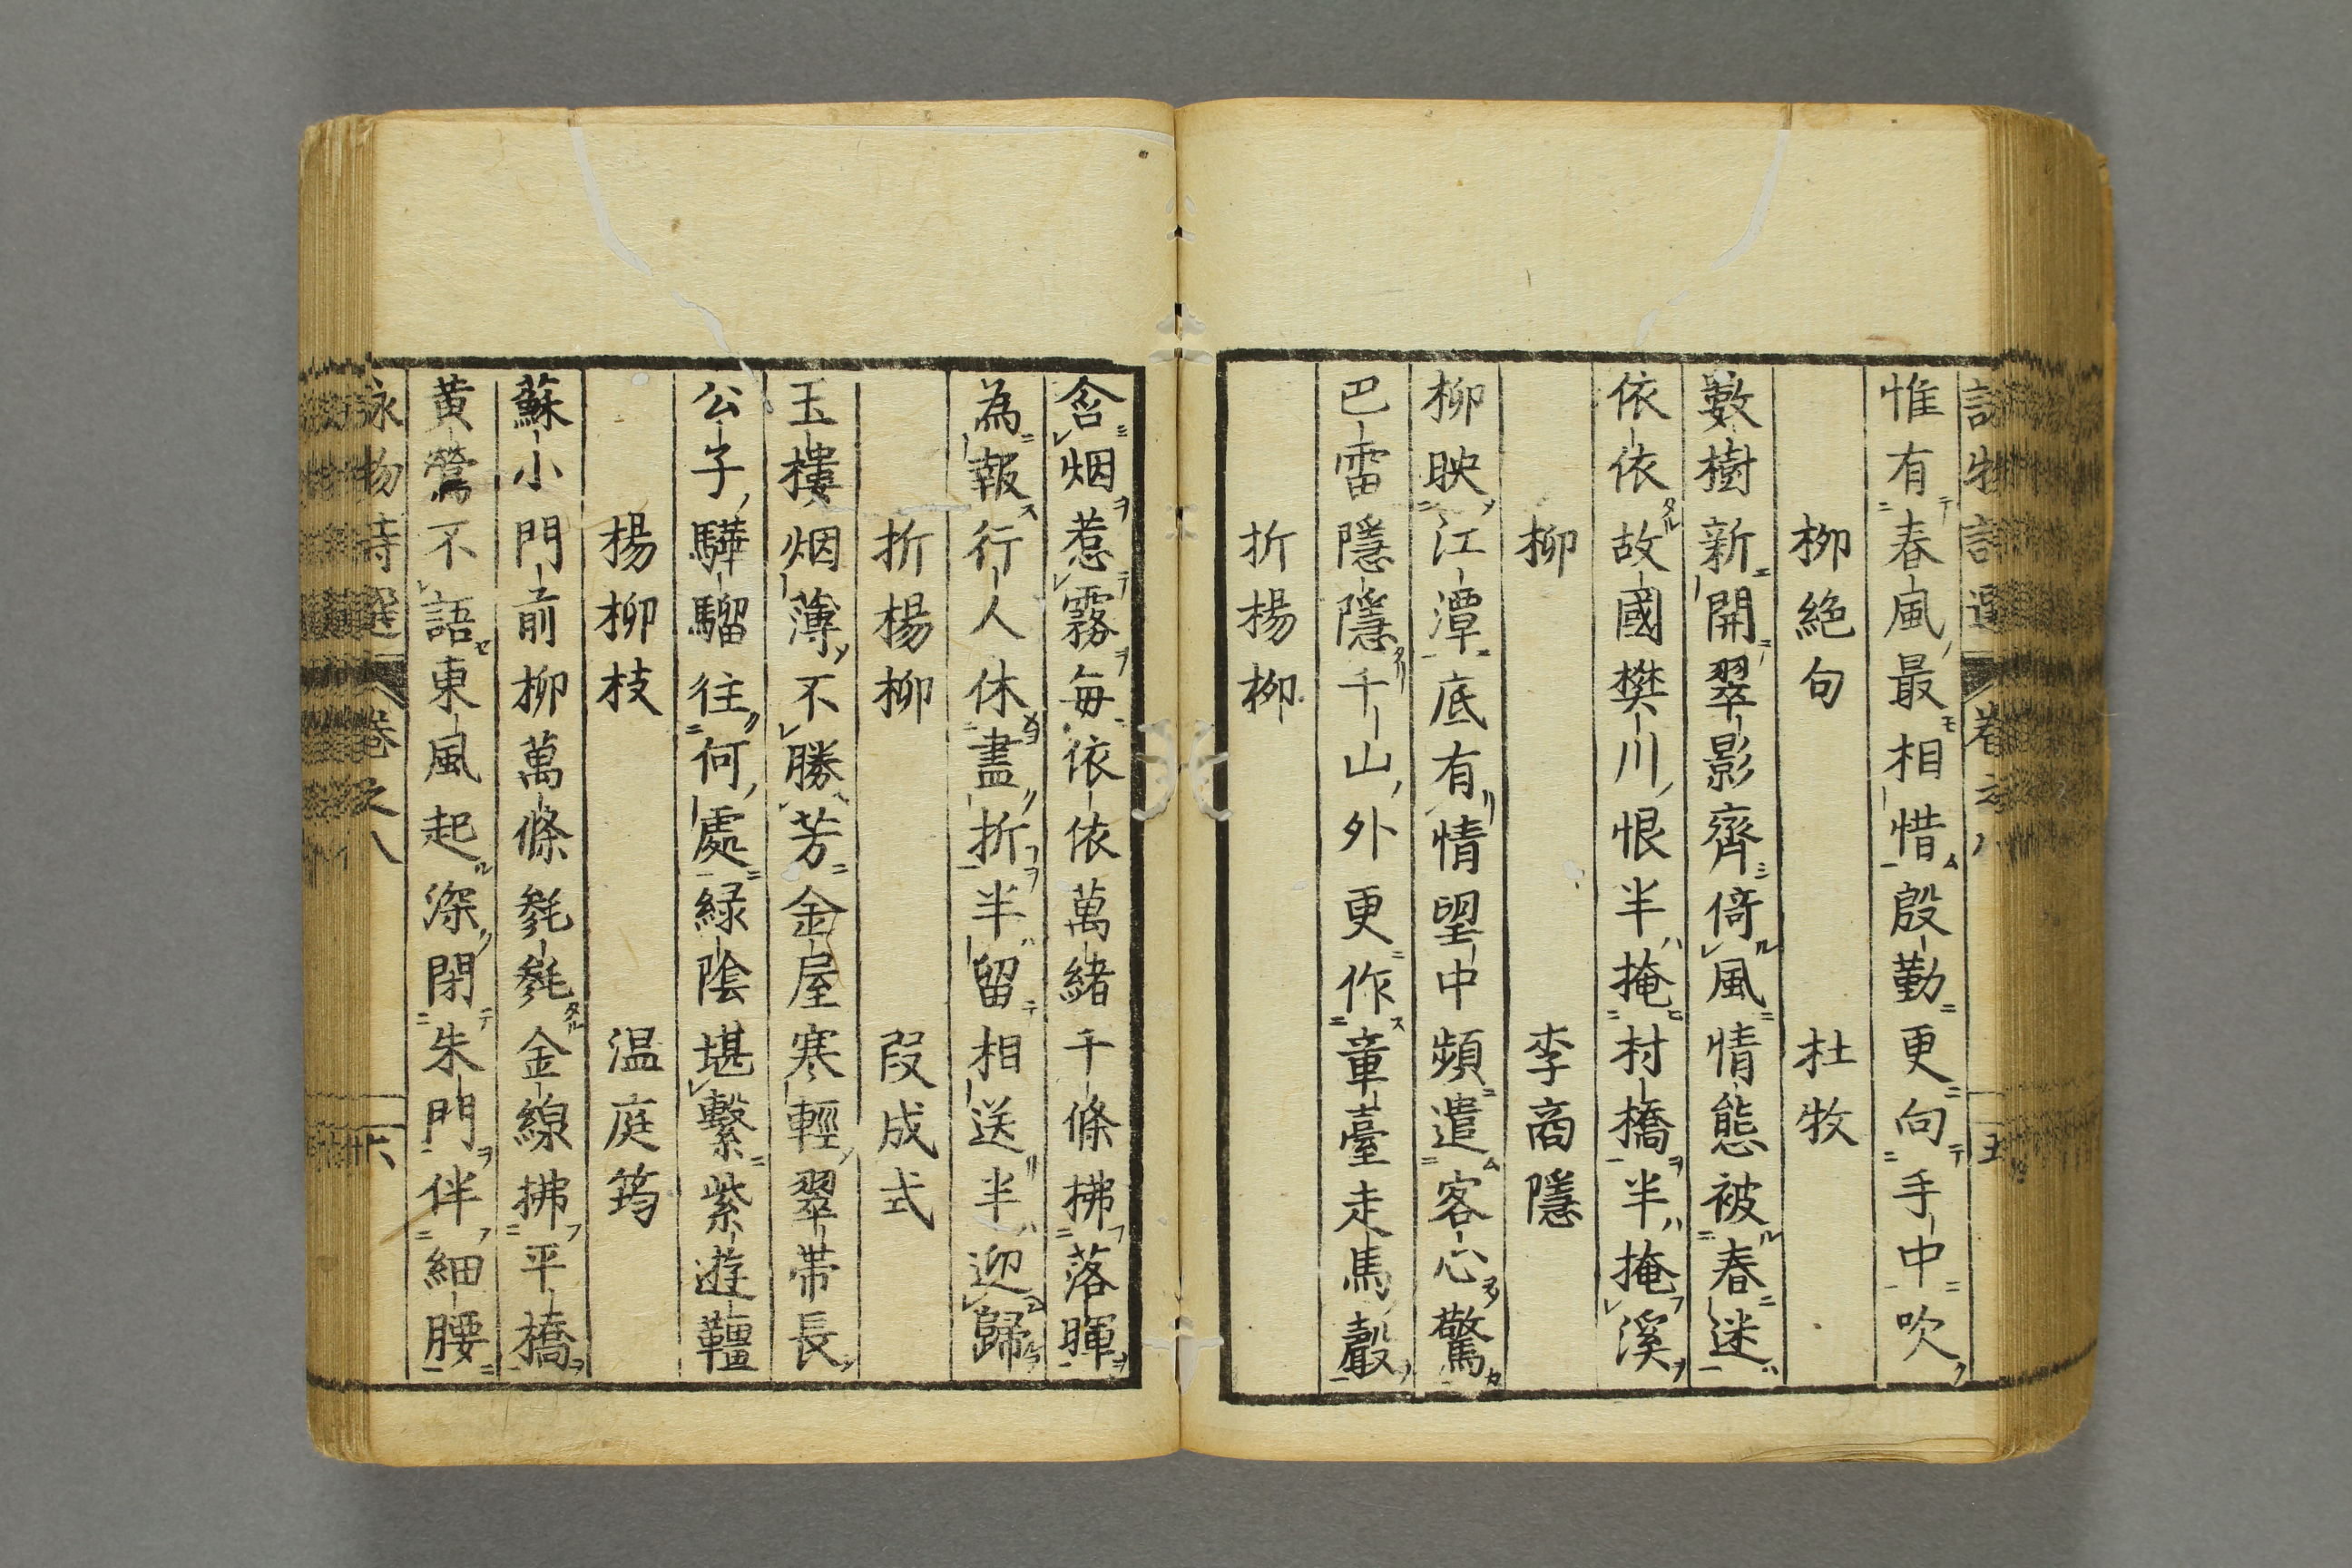 惟有春風最相惜殷勤更向手中吹
柳絕句 杜牧
數樹新開翠影齊倚風情態被春迷
依依故國樊川恨半掩村橋半掩溪
柳 李商隱
柳映江潭底有情望中頻遣客心驚
巴雷隱隱千山外更作章臺走馬聲
折楊柳
含烟惹霧每依依萬緒千條拂落暉
為報行人休盡折半留相送半迎歸
折楊柳 段成式
玉樓烟薄不勝芳金屋寒輕翠帶長
公子驊騮往何處綠陰堪繫紫遊韁
楊柳枝 温庭筠
蘇小門前柳萬條毿毿金線拂平橋
黄鶯不語東風起深閉朱門伴細腰
詠物詩選 卷之八 六